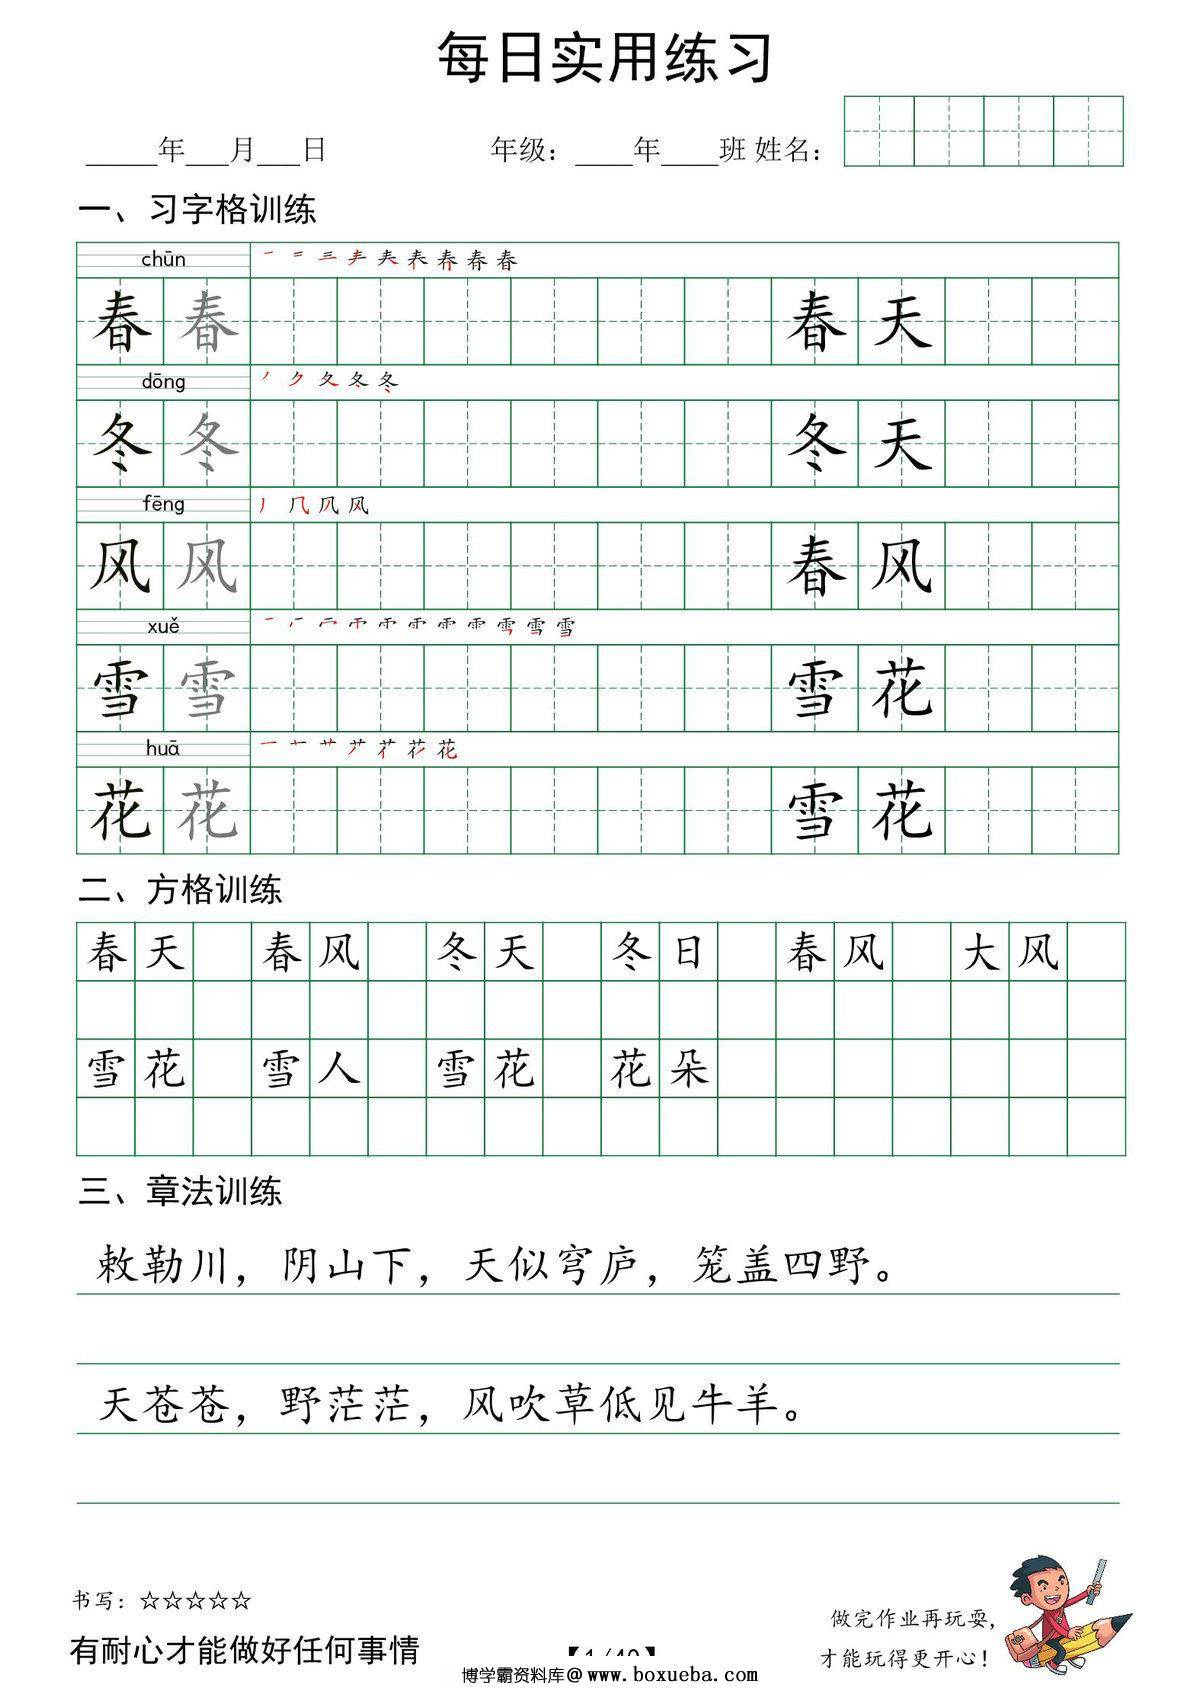 每日实用练习
_____年___月___日 年级：____年____班 姓名：
一、习字格训练
chūn
春 春 春 天
dōng
冬 冬 冬 天
fēng
风 风 春 风
xuě
雪 雪 雪 花
huā
花 花 雪 花
二、方格训练
春天 春风 冬天 冬日 春风 大风
雪花 雪人 雪花 花朵
三、章法训练
敕勒川，阴山下，天似穹庐，笼盖四野。
天苍苍，野茫茫，风吹草低见牛羊。
书写：☆☆☆☆☆
做完作业再玩耍，
有耐心才能做好任何事情
才能玩得更开心！
【1/40】
博学霸资料库@www.boxueba.com